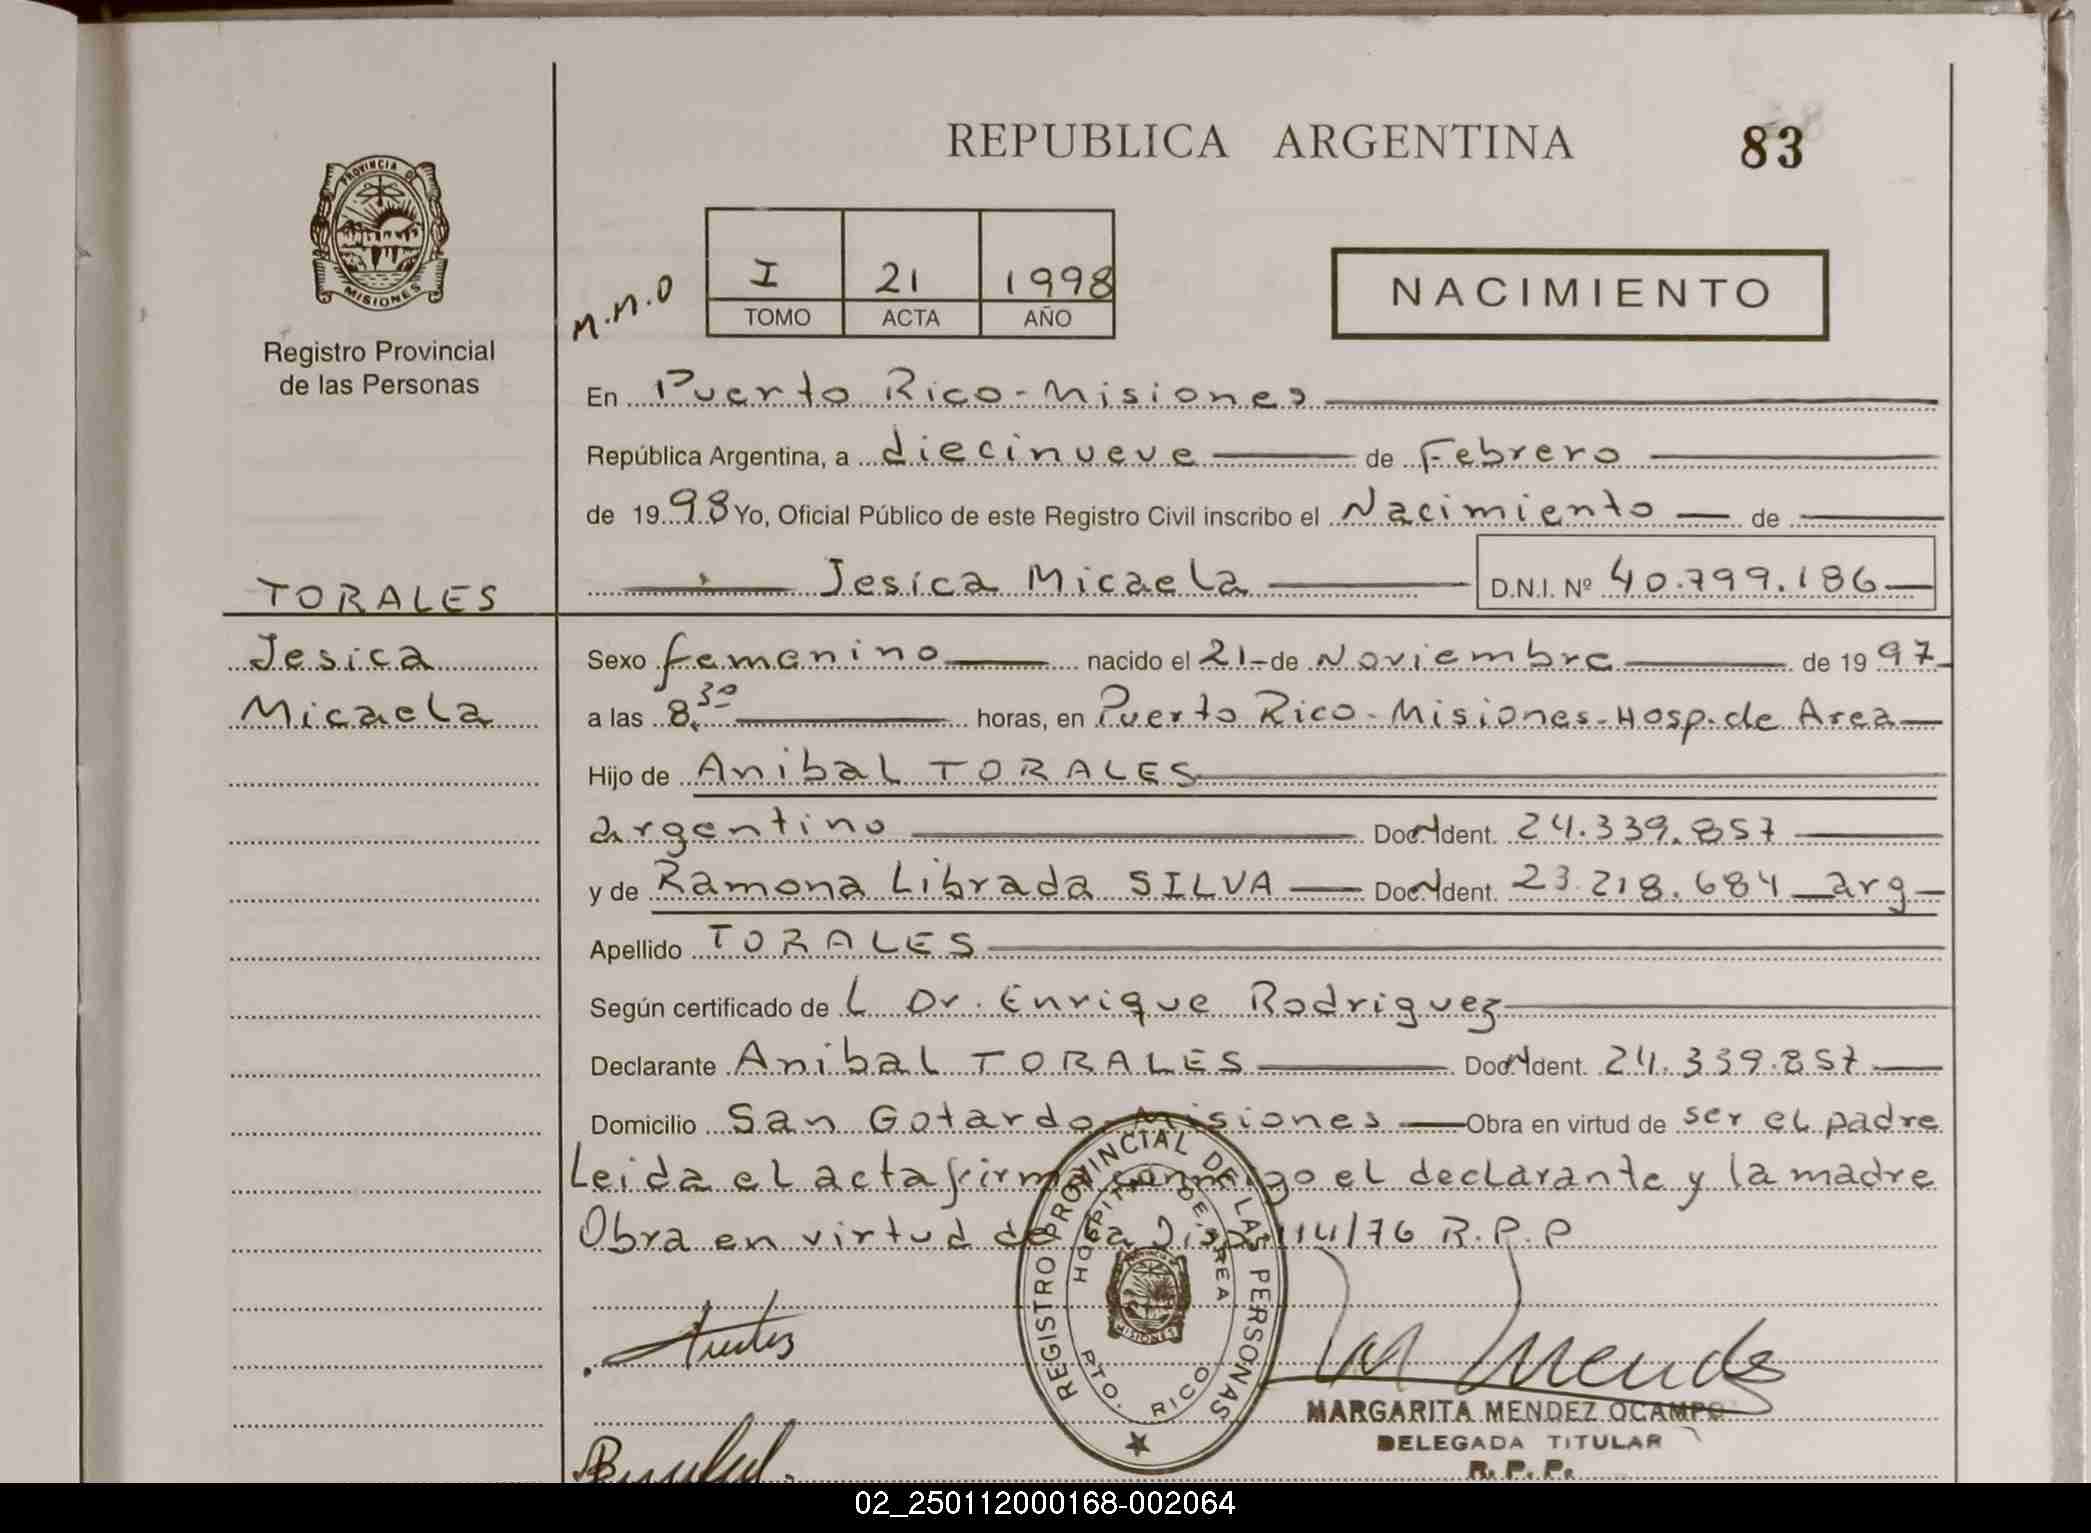 REPUBLICA ARGENTINA
83
PROVINCIA D
MISIONES
Registro Provincial
de las Personas
M.M.O
I 21 1998
TOMO ACTA AÑO
NACIMIENTO
En Puerto Rico - Misiones
República Argentina, a diecinueve de Febrero
de 1998 Yo, Oficial Público de este Registro Civil inscribo el Nacimiento de
Jesica Micaela D.N.I. Nº 40.799.186
TORALES
Jesica
Micaela
Sexo femenino nacido el 21 - de Noviembre de 1997
a las 8.30 horas, en Puerto Rico - Misiones - Hosp. de Area
Hijo de Anibal TORALES
argentino Doc N Ident. 24.339.857
y de Ramona Librada SILVA Doc N Ident. 23.218.684 arg
Apellido TORALES
Según certificado de L Dr. Enrique Rodriguez
Declarante Anibal TORALES Doc N Ident. 24.339.857
Domicilio San Gotardo Misiones Obra en virtud de ser el padre
Leida el acta firma conmigo el declarante y la madre
Obra en virtud de la Disp. 114/76 R.P.P
REGISTRO PROVINCIAL DE LAS PERSONAS
HOSPITAL DE AREA
MISIONES
PTO. RICO
M Mendez
MARGARITA MENDEZ OCAMPO
DELEGADA TITULAR
R. P. P.
02_250112000168-002064